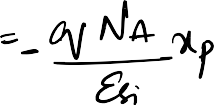 = - q N_A / ε_si x_p